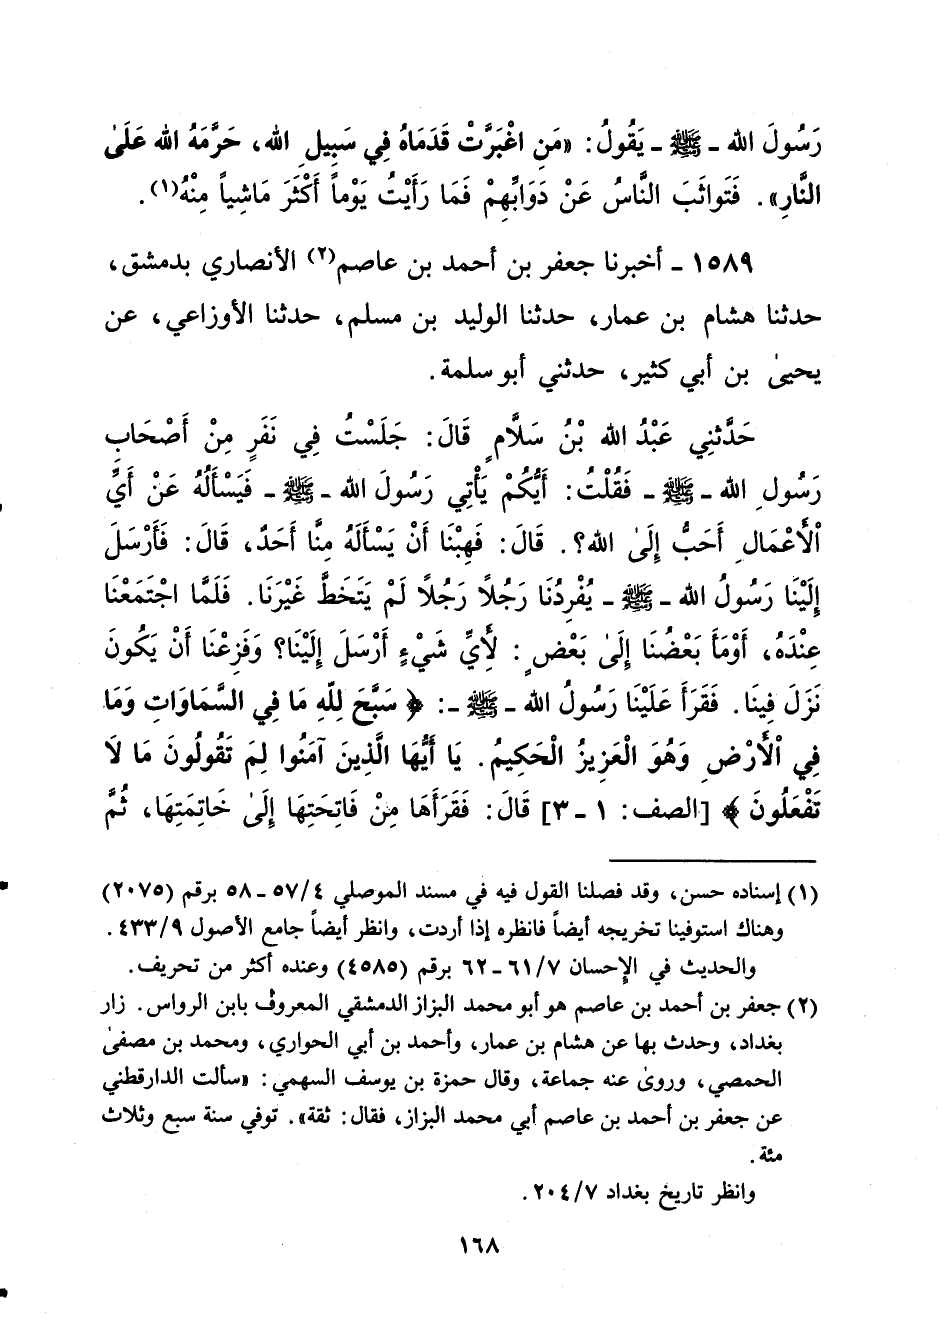 رَسُولَ الله ـ ﷺ ـ يَقُولُ: «مَنِ اغْبَرَّتْ قَدَمَاهُ فِي سَبِيلِ الله، حَرَّمَهُ الله عَلَىٰ
النَّارِ». فَتَواثَبَ النَّاسُ عَنْ دَوَابِّهِمْ فَمَا رَأَيْتُ يَوْماً أَكْثَرَ مَاشِياً مِنْهُ(١).
١٥٨٩ ـ أخبرنا جعفر بن أحمد بن عاصم(٢) الأنصاري بدمشق،
حدثنا هشام بن عمار، حدثنا الوليد بن مسلم، حدثنا الأوزاعي، عن
يحيىٰ بن أبي كثير، حدثني أبو سلمة.
حَدَّثنِي عَبْدُ الله بْنُ سَلَّامٍ قَالَ: جَلَسْتُ فِي نَفَرٍ مِنْ أَصْحَابِ
رَسُولِ الله ـ ﷺ ـ فَقُلْتُ: أَيُّكُمْ يَأْتِي رَسُولَ الله ـ ﷺ ـ فَيَسْأَلُهُ عَنْ أَيِّ
اْلأَعْمَالِ أَحَبُّ إِلَىٰ الله؟. قَالَ: فَهِبْنَا أَنْ يَسْأَلَهُ مِنَّا أَحَدٌ، قَالَ: فَأَرْسَلَ
إِلَيْنَا رَسُولُ الله ـ ﷺ ـ يُفْرِدُنَا رَجُلاً رَجُلاً لَمْ يَتَخَطَّ غَيْرَنَا. فَلَمَّا اجْتَمَعْنَا
عِنْدَهُ، أَوْمَأَ بَعْضُنَا إِلَىٰ بَعْضٍ: لِأَيِّ شَيْءٍ أَرْسَلَ إِلَيْنَا؟ وَفَزِعْنَا أَنْ يَكُونَ
نَزَلَ فِينَا. فَقَرَأَ عَلَيْنَا رَسُولُ الله ـ ﷺ ـ: ﴿ سَبَّحَ لِلّهِ مَا فِي السَّمَاوَاتِ وَمَا
فِي اْلأَرْضِ وَهُوَ الْعَزِيزُ الْحَكِيمُ. يَا أَيُّهَا الَّذِينَ آمَنُوا لِمَ تَقُولُونَ مَا لَا
تَفْعَلُونَ ﴾ [الصف: ١ ـ ٣] قَالَ: فَقَرَأَهَا مِنْ فَاتِحَتِهَا إِلَىٰ خَاتِمَتِهَا، ثُمَّ
(١) إسناده حسن، وقد فصلنا القول فيه في مسند الموصلي ٤/ ٥٧ ـ ٥٨ برقم (٢٠٧٥)
وهناك استوفينا تخريجه أيضاً فانظره إذا أردت، وانظر أيضاً جامع الأصول ٩/ ٤٣٣.
والحديث في الإحسان ٧/ ٦١ ـ ٦٢ برقم (٤٥٨٥) وعنده أكثر من تحريف.
(٢) جعفر بن أحمد بن عاصم هو أبو محمد البزاز الدمشقي المعروف بابن الرواس. زار
بغداد، وحدث بها عن هشام بن عمار، وأحمد بن أبي الحواري، ومحمد بن مصفىٰ
الحمصي، وروىٰ عنه جماعة، وقال حمزة بن يوسف السهمي: «سألت الدارقطني
عن جعفر بن أحمد بن عاصم أبي محمد البزاز، فقال: ثقة». توفي سنة سبع وثلاث
مئة.
وانظر تاريخ بغداد ٧/ ٢٠٤.
١٦٨